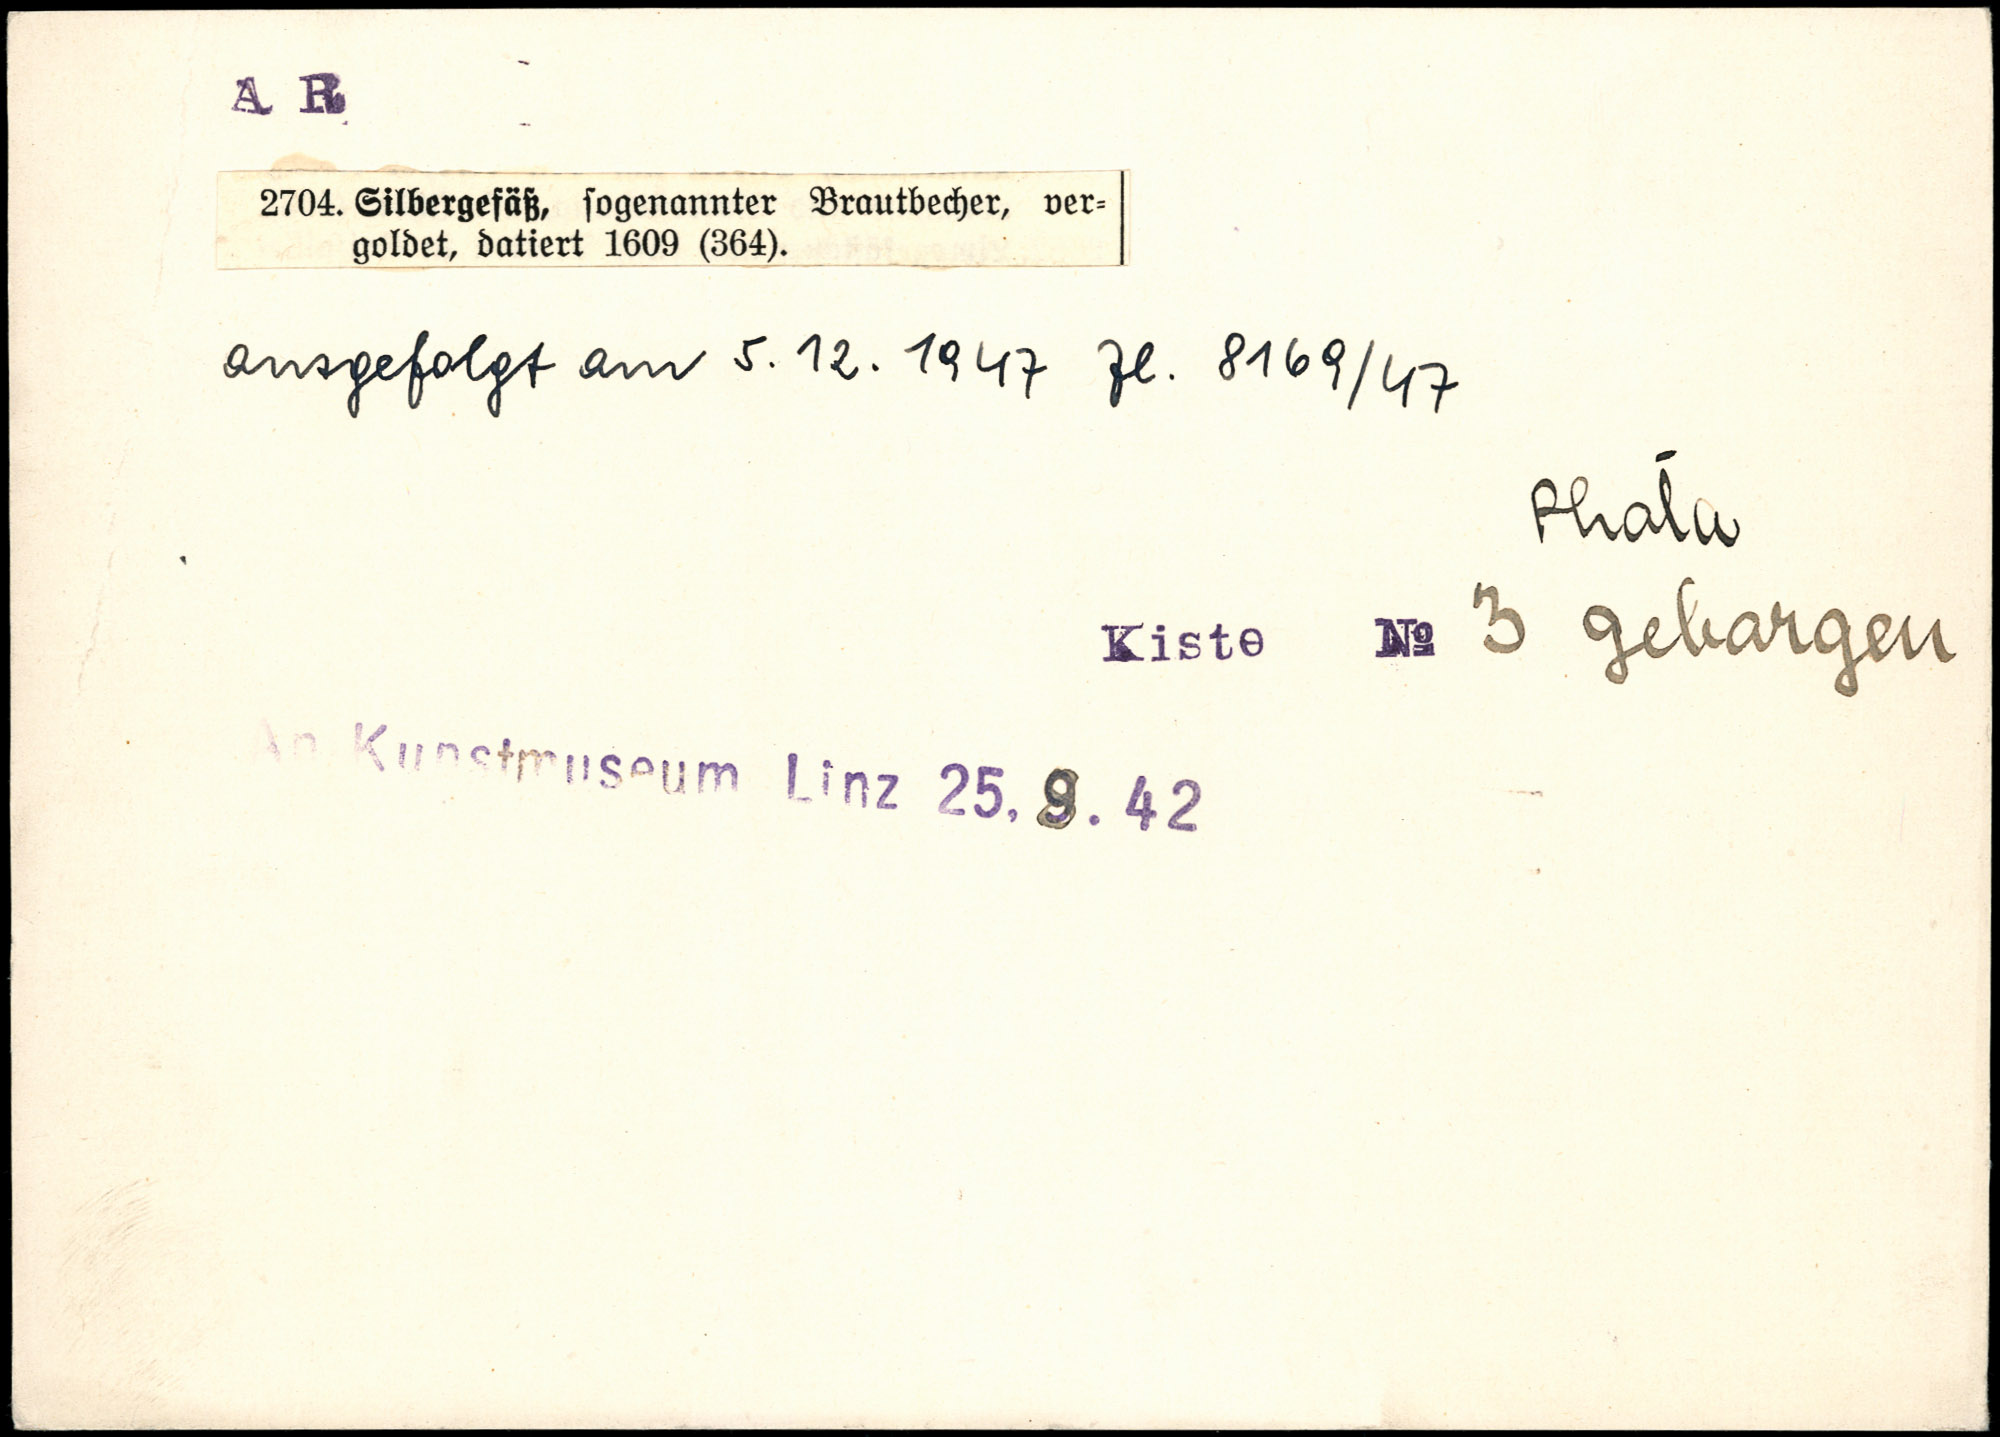 A R
2704. Silbergefäß, sogenannter Brautbecher, ver=
goldet, datiert 1609 (364).
ausgefolgt am 5.12.1947 Zl. 8169/47
Kiste № 3 geborgen
An Kunstmuseum Linz 25. 9. 42